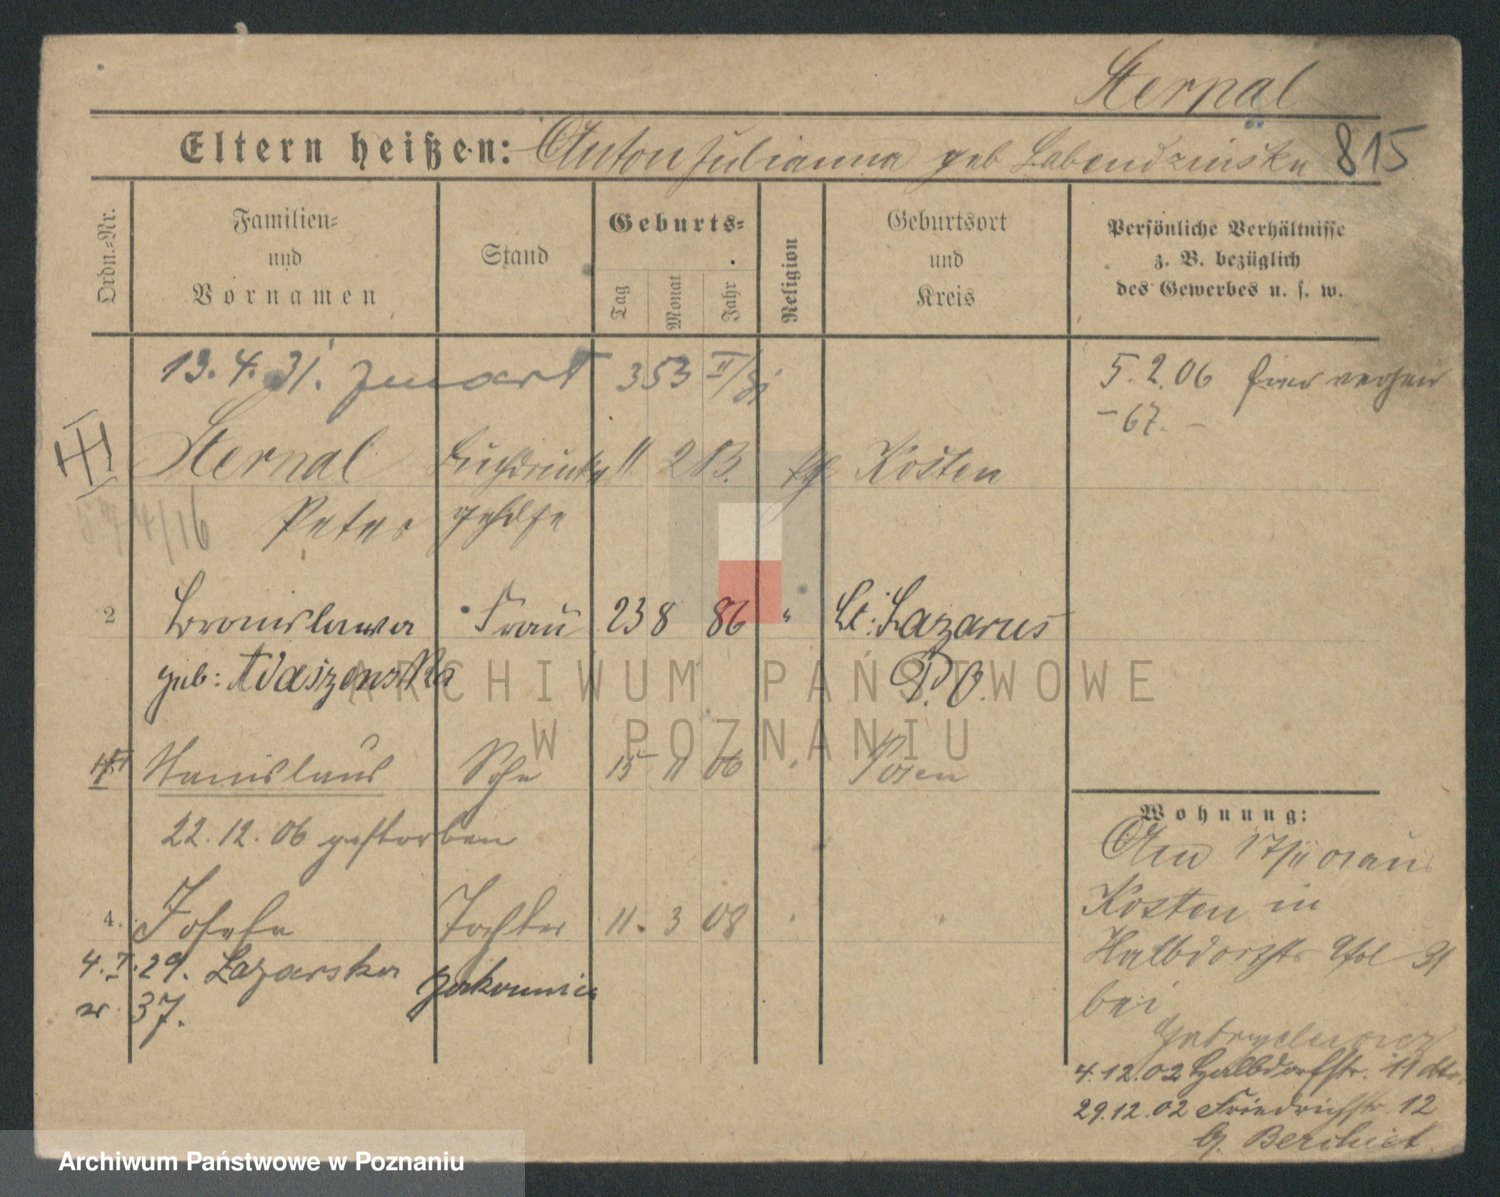 Sternal
Eltern heißen: Anton Julianna geb Labendzinska 815
Ordn.-Nr.
Familien-
und
Vornamen
Stand
Geburts-
Tag
Monat
Jahr
Religion
Geburtsort
und
Kreis
Persönliche Verhältnisse
z. B. bezüglich
des Gewerbes u. s. w.
13. 4. 31. 353 II/31
5. 2. 06
- 67. -
Sternal Buchdrucker 11 2 83. kth Kosten
Peter gehilfe
2 Bronislawa Frau 23 8 86 " St: Lazarus
geb: P. O.
Stanislaus Sohn 15 11 06 " Posen
22. 12. 06 gestorben
4. Josefa Tochter 11. 3 08 " "
4. I. 29. Lazarska
37.
Wohnung:
Am 17/11 01 aus
Kosten in
Halbdorfstr 31
bei
4. 12. 02 Halbdorfstr. 11
29. 12. 02 Friedrichstr 12
ARCHIWUM PAŃSTWOWE
W POZNANIU
Archiwum Państwowe w Poznaniu